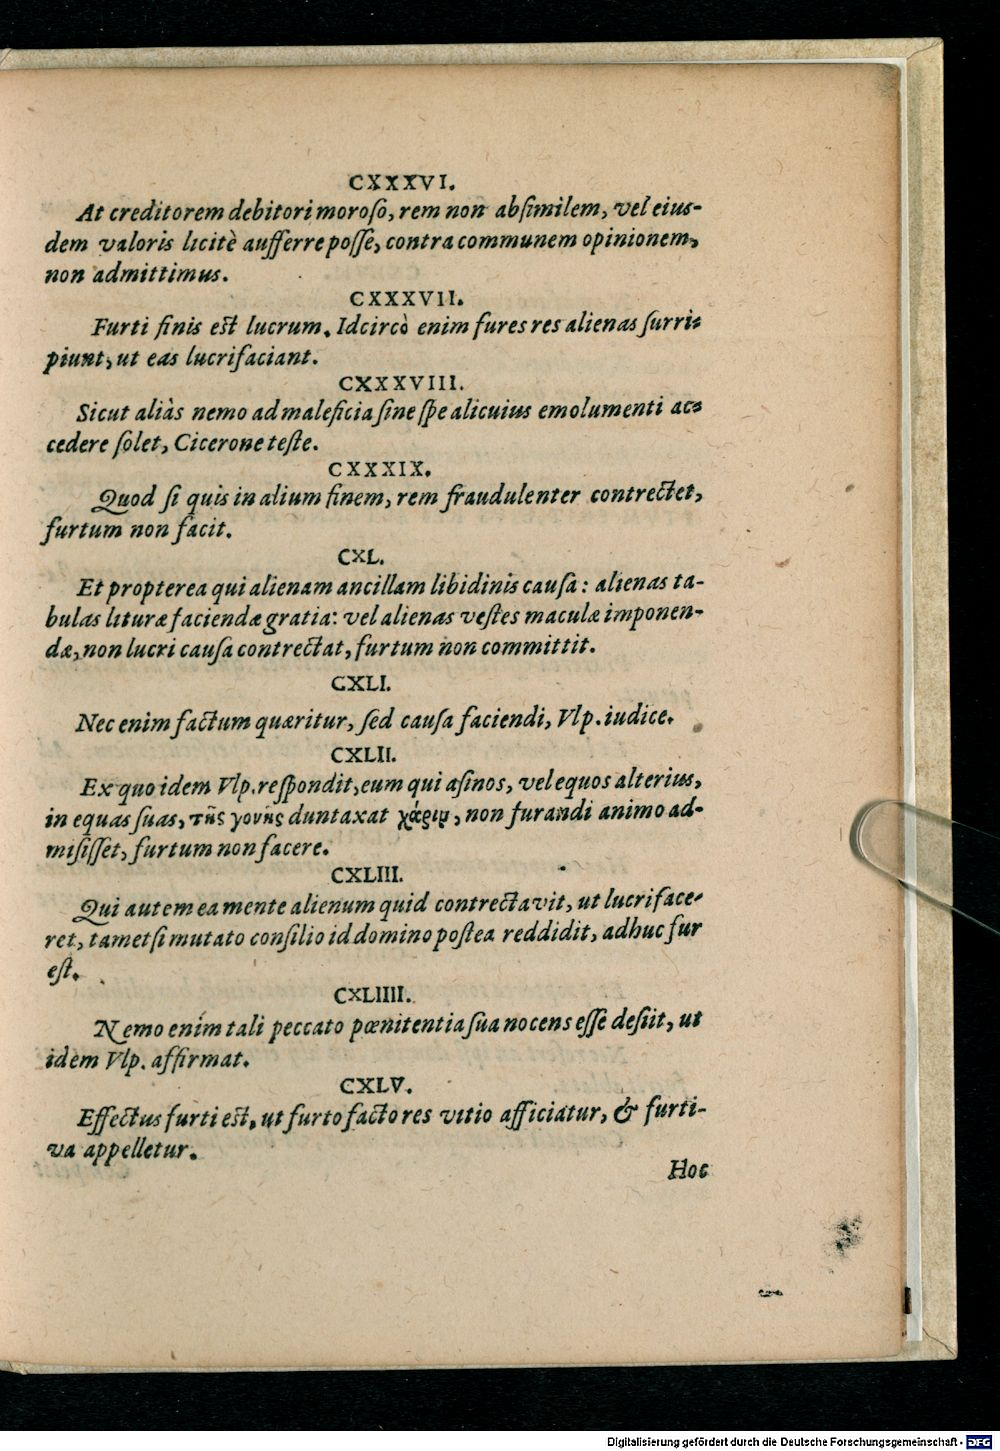 CXXXVI.
At creditorem debitori moroſo, rem non abſimilem, vel eius-
dem valoris licitè aufferre poſſe, contra communem opinionem,
non admittimus.
CXXXVII.
Furti finis eſt lucrum. Idcircò enim fures res alienas ſurri-
piunt, ut eas lucrifaciant.
CXXXVIII.
Sicut aliàs nemo ad maleficia ſine ſpe alicuius emolumenti ac-
cedere ſolet, Cicerone teſte.
CXXXIX.
Quod ſi quis in alium finem, rem fraudulenter contrectet,
furtum non facit.
CXL.
Et propterea qui alienam ancillam libidinis cauſa: alienas ta-
bulas lituræ faciendæ gratia: vel alienas veſtes maculæ imponen-
dæ, non lucri cauſa contrectat, furtum non committit.
CXLI.
Nec enim factum quæritur, ſed cauſa faciendi, Vlp. iudice.
CXLII.
Ex quo idem Vlp. reſpondit, eum qui aſinos, vel equos alterius,
in equas ſuas, τῆς γονῆς duntaxat χάριν, non furandi animo ad-
miſiſſet, furtum non facere.
CXLIII.
Qui autem ea mente alienum quid contrectavit, ut lucriface-
ret, tametſi mutato conſilio id domino poſtea reddidit, adhuc fur
eſt.
CXLIIII.
Nemo enim tali peccato pœnitentia ſua nocens eſſe deſiit, ut
idem Vlp. affirmat.
CXLV.
Effectus furti eſt, ut furto facto res vitio afficiatur, & furti-
va appelletur.
Hoc
Digitalisierung gefördert durch die Deutsche Forschungsgemeinschaft - DFG